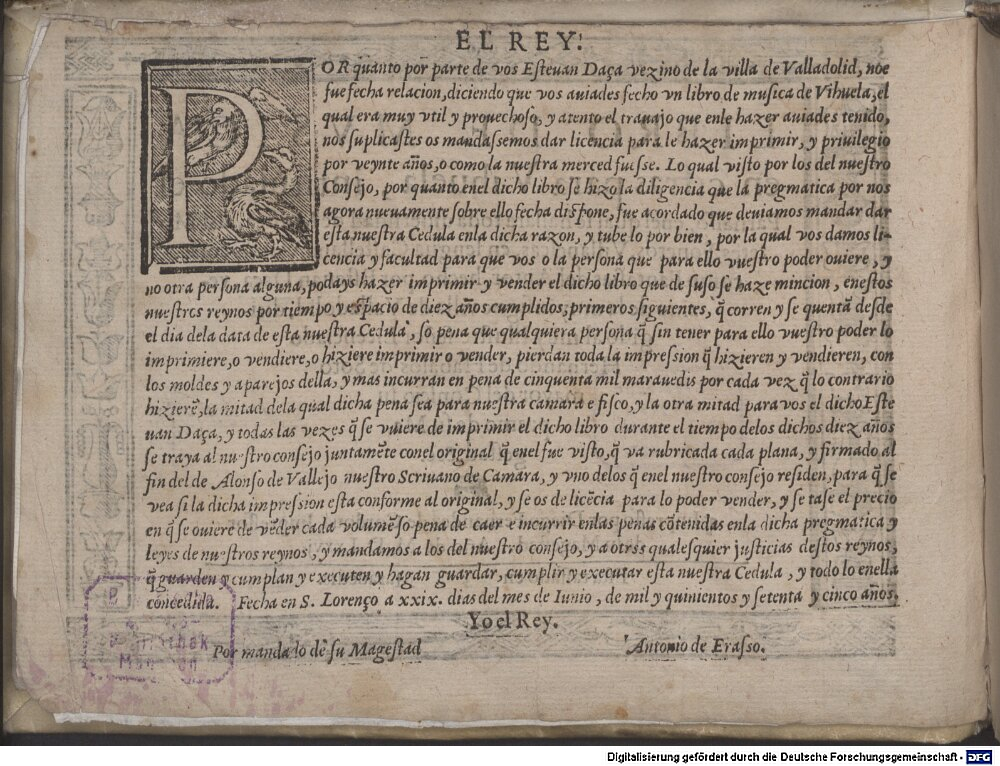 EL REY.
POR quanto por parte de vos Esteuan Daça vezino de la villa de Valladolid, nos
fue fecha relacion, diciendo que vos auiades fecho vn libro de musica de Vihuela, el
qual era muy vtil y prouechoso, y atento el trauajo que enle hazer auiades tenido,
nos suplicastes os mandassemos dar licencia para le hazer imprimir, y priuilegio
por veynte años, o como la nuestra merced fuesse. Lo qual visto por los del nuestro
Consejo, por quanto enel dicho libro se hizo la diligencia que la pregmatica por nos
agora nueuamente sobre ello fecha dispone, fue acordado que deuiamos mandar dar
esta nuestra Cedula enla dicha razon, y tube lo por bien, por la qual vos damos li-
cencia y facultad para que vos o la persona que para ello vuestro poder ouiere, y
no otra persona alguna, podays hazer imprimir y vender el dicho libro que de suso se haze mincion, enestos
nuestros reynos por tiempo y espacio de diez años cumplidos, primeros siguientes, q̃ corren y se quentã desde
el dia dela data de esta nuestra Cedula, so pena que qualquiera persona q̃ sin tener para ello vuestro poder lo
imprimiere, o vendiere, o hiziere imprimir o vender, pierdan toda la impression q̃ hizieren y vendieren, con
los moldes y aparejos della, y mas incurran en pena de cinquenta mil marauedis por cada vez q̃ lo contrario
hizierẽ, la mitad dela qual dicha pena sea para nuestra camara e fisco, y la otra mitad para vos el dicho Este
uan Daça, y todas las vezes q̃ se vuiere de imprimir el dicho libro durante el tiempo delos dichos diez años
se traya al nuestro consejo juntamẽte conel original q̃ enel fue visto, q̃ va rubricada cada plana, y firmado al
fin del de Alonso de Vallejo nuestro Scriuano de Camara, y vno delos q̃ enel nuestro consejo residen, para q̃ se
vea si la dicha impression esta conforme al original, y se os de licẽcia para lo poder vender, y se tase el precio
en q̃ se ouiere de vẽder cada volumẽ so pena de caer e incurrir enlas penas cõtenidas enla dicha pregmatica y
leyes de nuestros reynos, y mandamos a los del nuestro consejo, y a otros qualesquier justicias destos reynos,
q̃ guarden y cumplan y executen y hagan guardar, cumplir y executar esta nuestra Cedula, y todo lo enella
concedida. Fecha en S. Lorenço a xxix. dias del mes de Iunio, de mil y quinientos y setenta y cinco años.
Yo el Rey.
Por mandado de su Magestad Antonio de Erasso.
Digitalisierung gefördert durch die Deutsche Forschungsgemeinschaft - DFG